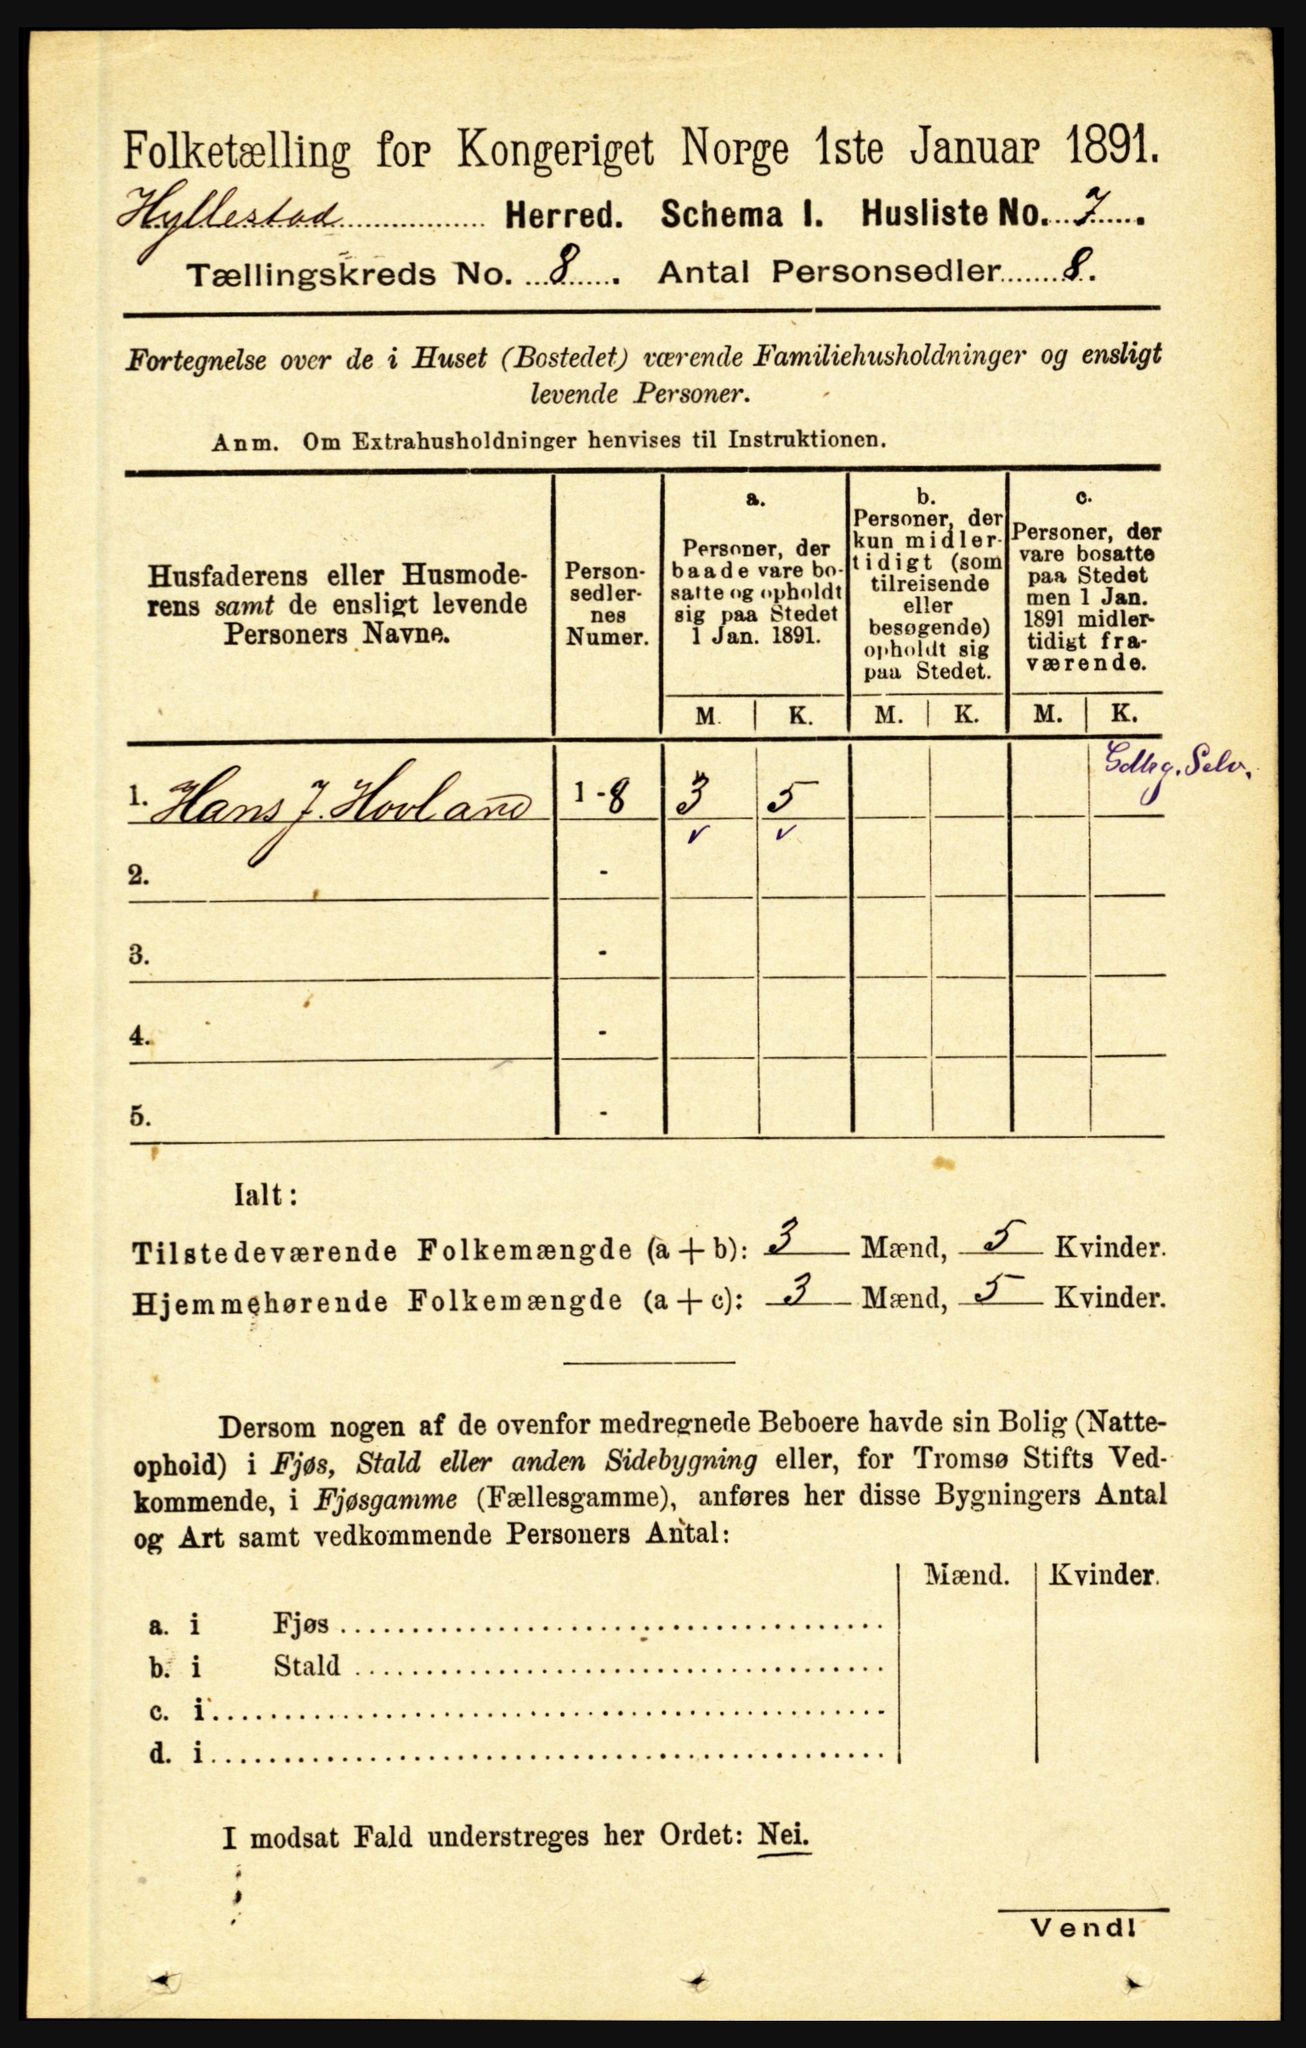 Folketælling for Kongeriget Norge 1ste Januar 1891.
Hyllestad Herred. Schema I. Husliste No. 7.
Tællingskreds No. 8. Antal Personsedler 8.
Fortegnelse over de i Huset (Bostedet) værende Familiehusholdninger og ensligt
levende Personer.
Anm. Om Extrahusholdninger henvises til Instruktionen.
Husfaderens eller Husmode-
rens samt de ensligt levende
Personers Navne.
Person-
sedler-
nes
Numer.
a.
Personer, der
baade vare bo-
satte og opholdt
sig paa Stedet
1 Jan. 1891.
b.
Personer, der
kun midler-
tidigt (som
tilreisende
eller
besøgende)
opholdt sig
paa Stedet.
c.
Personer, der
vare bosatte
paa Stedet
men 1 Jan.
1891 midler-
tidigt fra-
værende.
M. K. M. K. M. K.
Selv.
1. Hans J. Hovland 1-8 3 5
v v
2. -
3. -
4. -
5. -
Ialt:
Tilstedeværende Folkemængde (a+b): 3 Mænd, 5 Kvinder.
Hjemmehørende Folkemængde (a+c): 3 Mænd, 5 Kvinder.
Dersom nogen af de ovenfor medregnede Beboere havde sin Bolig (Natte-
ophold) i Fjøs, Stald eller anden Sidebygning eller, for Tromsø Stifts Ved-
kommende, i Fjøsgamme (Fællesgamme), anføres her disse Bygningers Antal
og Art samt vedkommende Personers Antal:
Mænd. Kvinder.
a. i Fjøs
b. i Stald
c. i
d. i
I modsat Fald understreges her Ordet: Nei.
Vend!